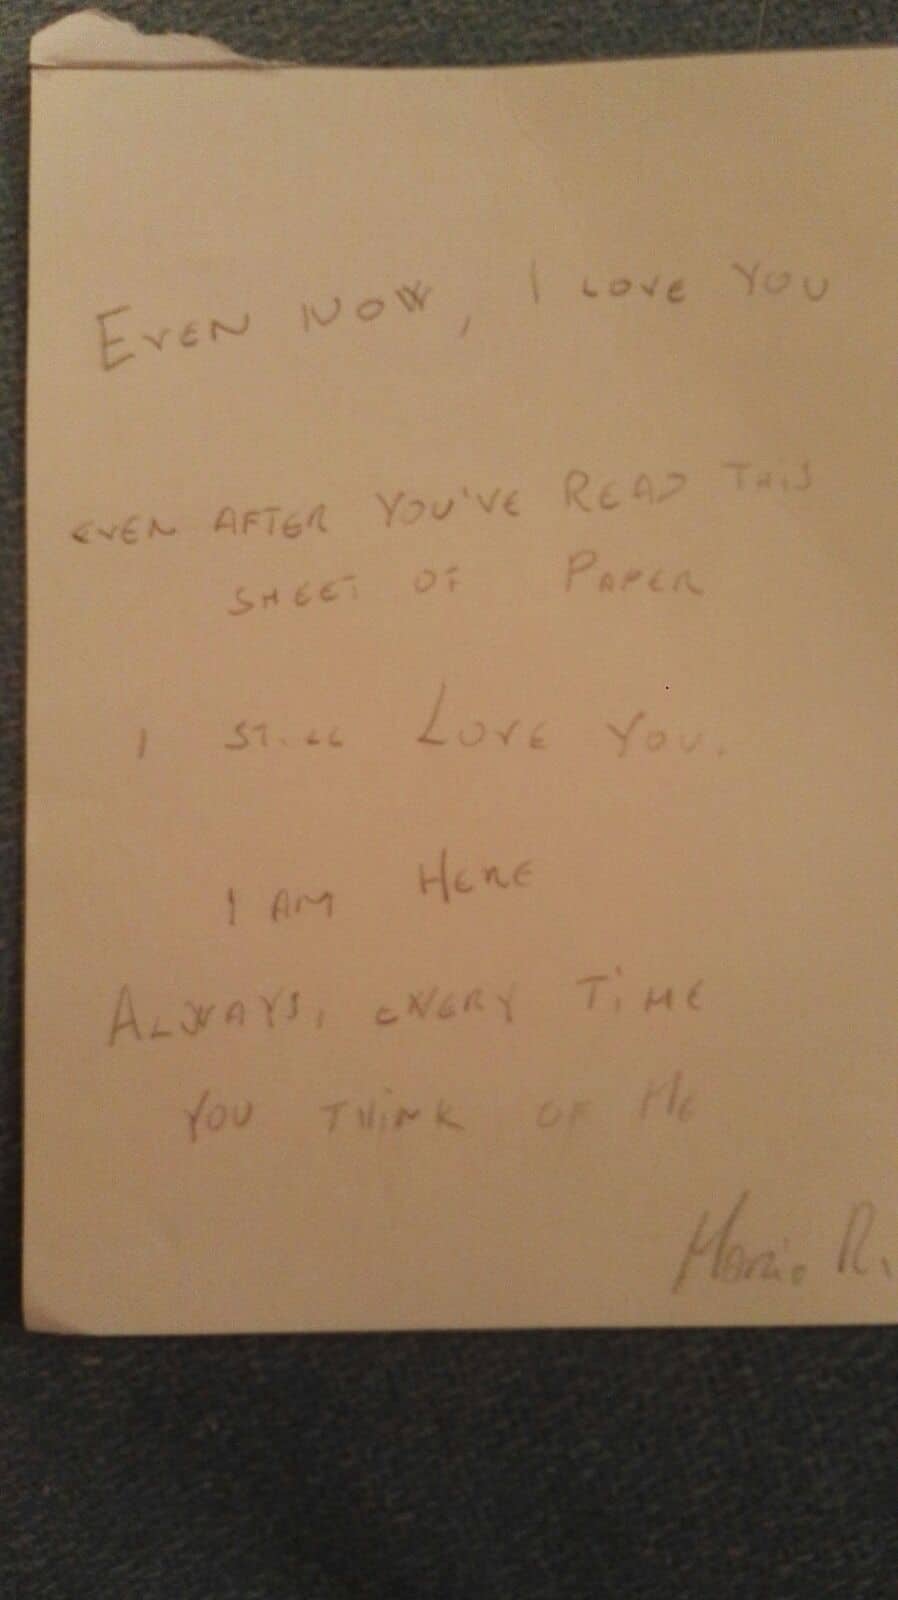 EVEN NOW, I LOVE YOU
EVEN AFTER YOU'VE READ THIS
SHEET OF PAPER
I STILL LOVE YOU.
I AM HERE
ALWAYS, EVERY TIME
YOU THINK OF ME
R.